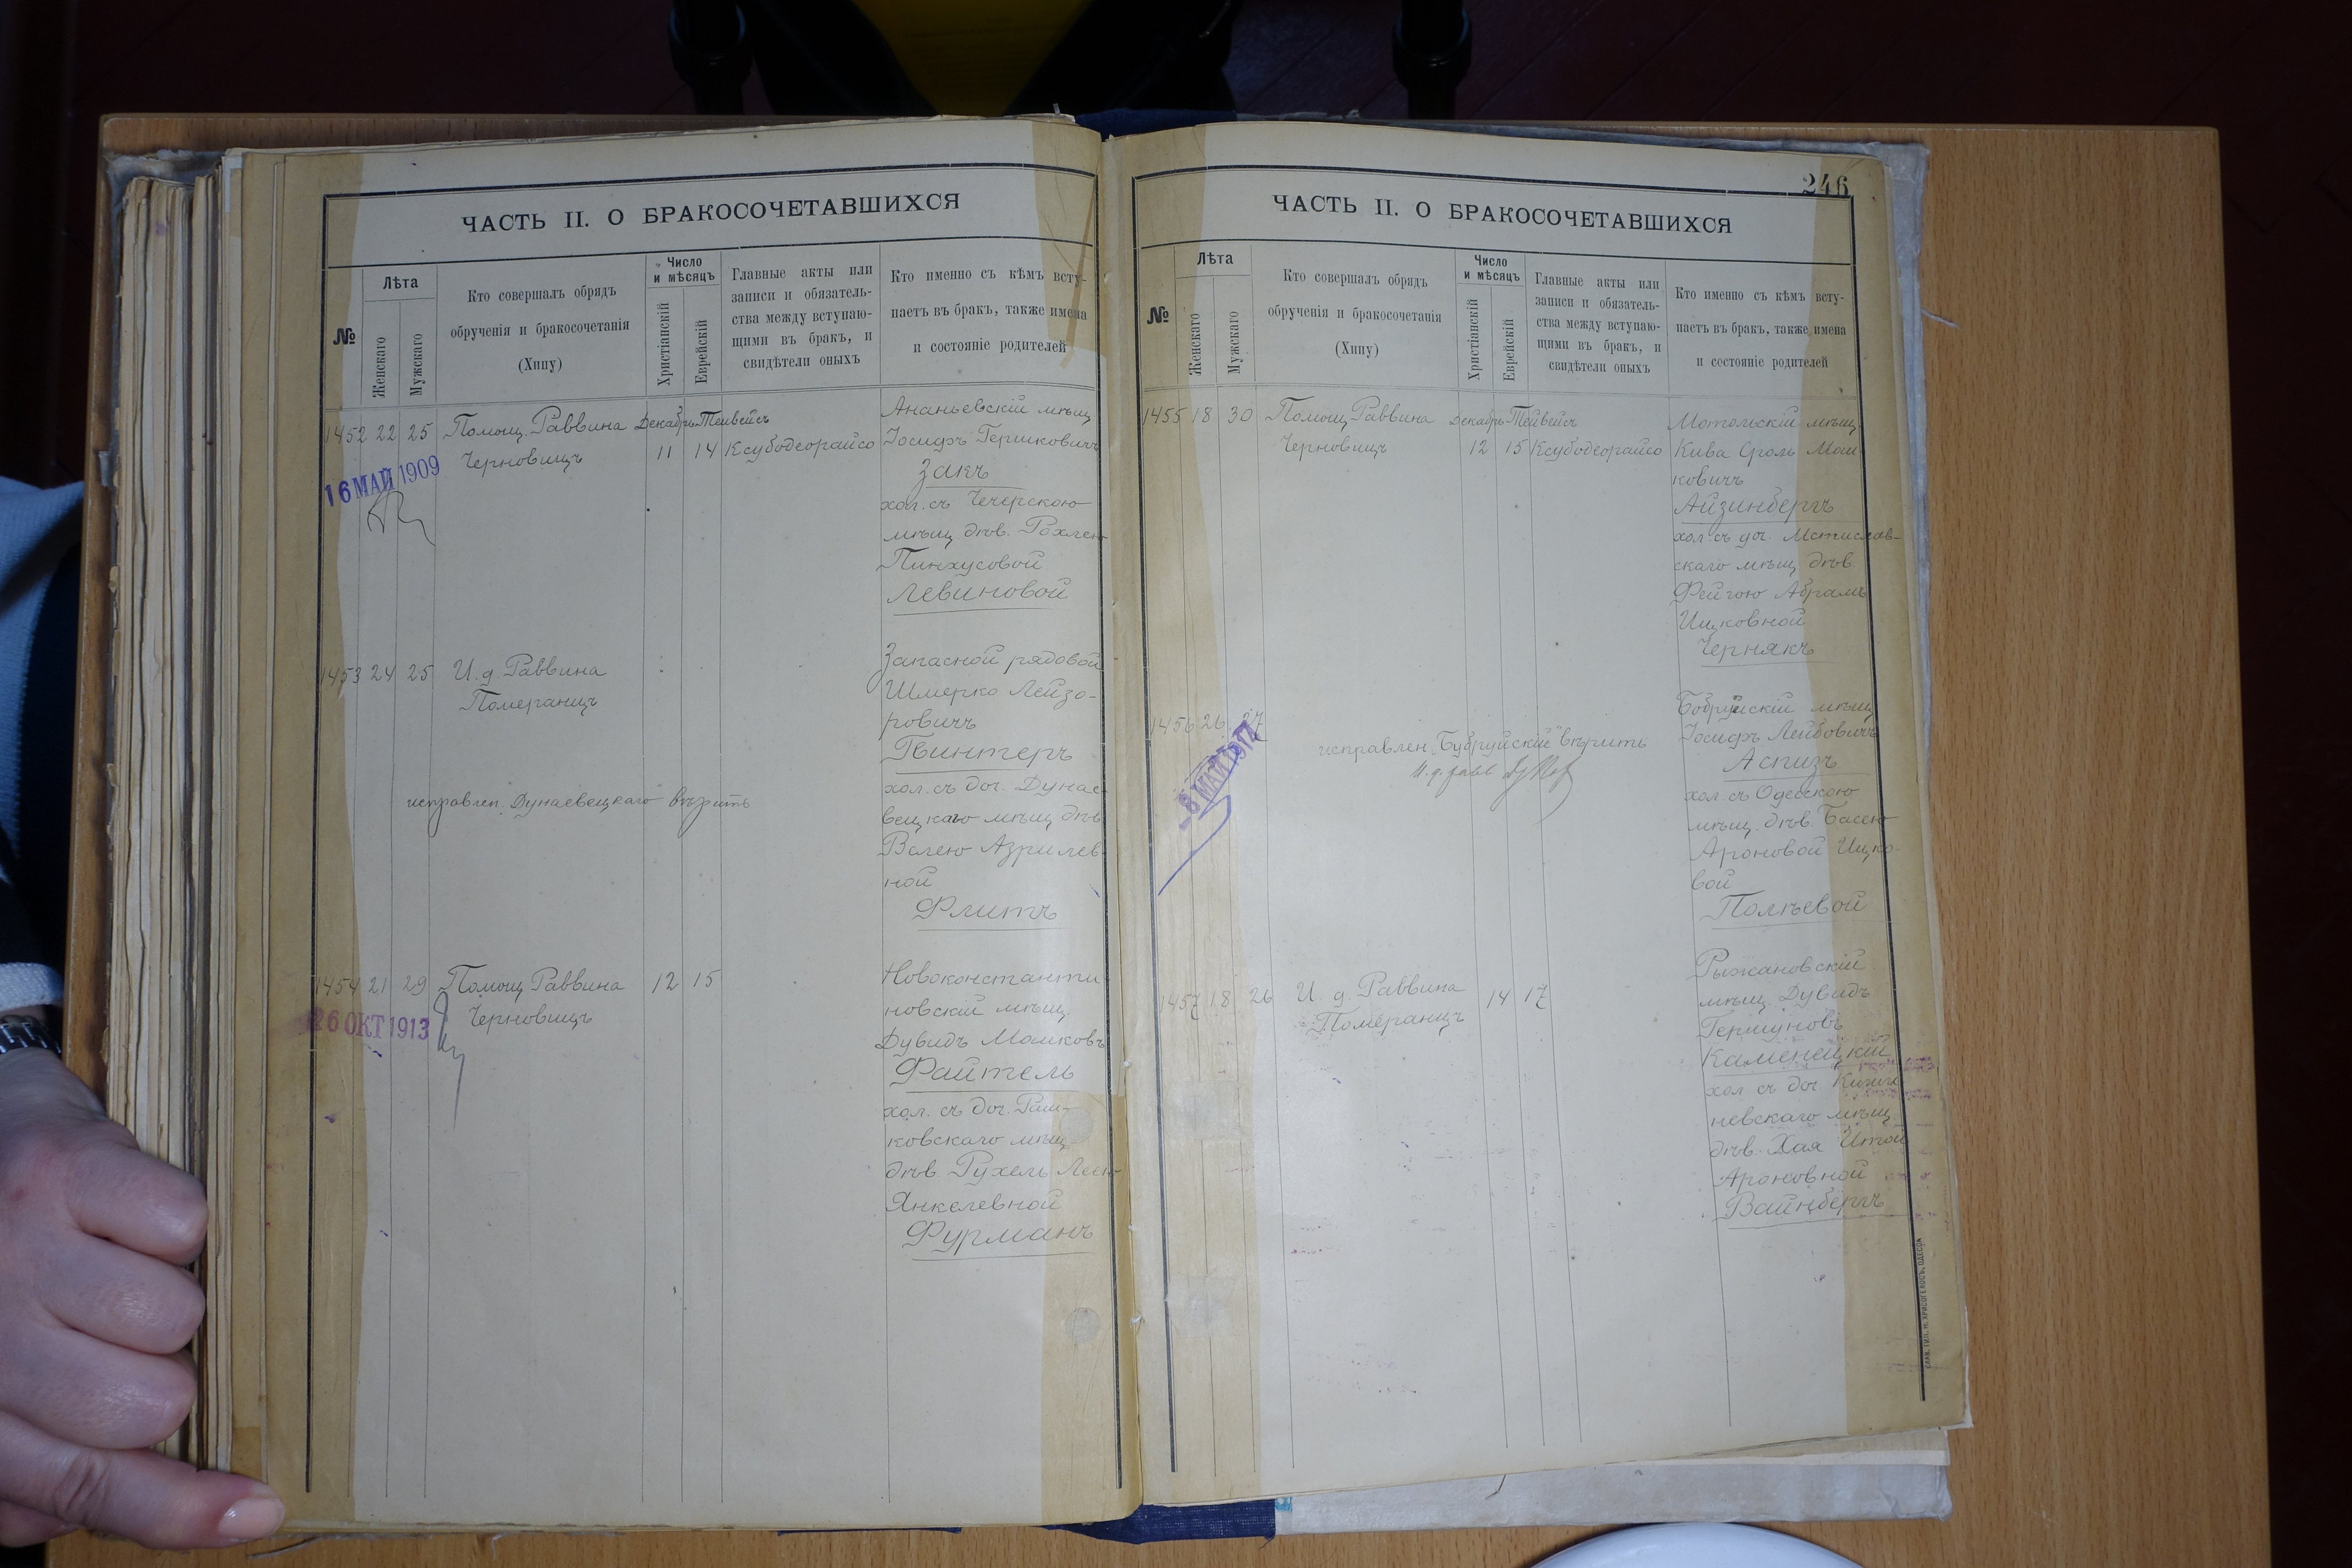 ЧАСТЬ II. О БРАКОСОЧЕТАВШИХСЯ
№
Лѣта
Женскаго
Мужскаго
Кто совершалъ обрядъ
обрученія и бракосочетанія
(Хипу)
Число
и мѣсяцъ
Христіанскій
Еврейскій
Главные акты или
записи и обязатель-
ства между вступаю-
щими въ бракъ, и
свидѣтели оныхъ
Кто именно съ кѣмъ всту-
паетъ въ бракъ, также имена
и состояніе родителей
1452 22 25 Помощ. Раввина Декабрь Тейвейсъ
Черновицъ 11 14 Ксубодеорайсо
16 МАЙ 1909
Ананьевскій мѣщ.
Іосифъ Гершковичъ
Закъ
хол. съ Чечерскою
мѣщ. дѣв. Рохлею
Пинхусовой
Левиновой
1453 24 25 И. д. Раввина
Померанцъ
Запасной рядовой
Шмерко Лейзо-
ровичъ
Гвинтеръ
хол. съ доч. Дунае-
вецкаго мѣщ. дѣв.
Велею Азрилев-
ной
Флитъ
исправлен. „Дунаевецкаго“ вѣрить
1454 21 29 Помощ. Раввина 12 15
Черновицъ
26 ОКТ 1913
Новоконстанти-
новскій мѣщ.
Дувидъ Мошковъ
Файтель
хол. съ доч. Раш-
ковскаго мѣщ.
дѣв. Рухель Леею
Янкелевной
Фурманъ
246
ЧАСТЬ II. О БРАКОСОЧЕТАВШИХСЯ
№
Лѣта
Женскаго
Мужскаго
Кто совершалъ обрядъ
обрученія и бракосочетанія
(Хипу)
Число
и мѣсяцъ
Христіанскій
Еврейскій
Главные акты или
записи и обязатель-
ства между вступаю-
щими въ бракъ, и
свидѣтели оныхъ
Кто именно съ кѣмъ всту-
паетъ въ бракъ, также имена
и состояніе родителей
1455 18 30 Помощ. Раввина Декабрь Тейвейсъ
Черновицъ 12 15 Ксубодеорайсо
Мотольскій мѣщ.
Кива Сроль Мош-
ковичъ
Айзинбергъ
хол. съ доч. Мстислав-
скаго мѣщ. дѣв.
Фейгою Абрамъ
Ицковной
Чернякъ
1456 26 27
8 МАЙ 1917
исправлен. „Бубруйскій“ вѣрить
И. д. равв.
Бобруйскій мѣщ.
Іосифъ Лейбовичъ
Аспизъ
хол. съ Одесскою
мѣщ. дѣв. Басею
Ароновой Ицко-
вой
Полѣевой
1457 18 26 И. д. Раввина 14 17
Померанцъ
Рыжановскій
мѣщ. Дувидъ
Гершуновъ
Каменецкій
хол. съ доч. Киши-
невскаго мѣщ.
дѣв. Хая Итой
Ароновной
Вайнбергъ